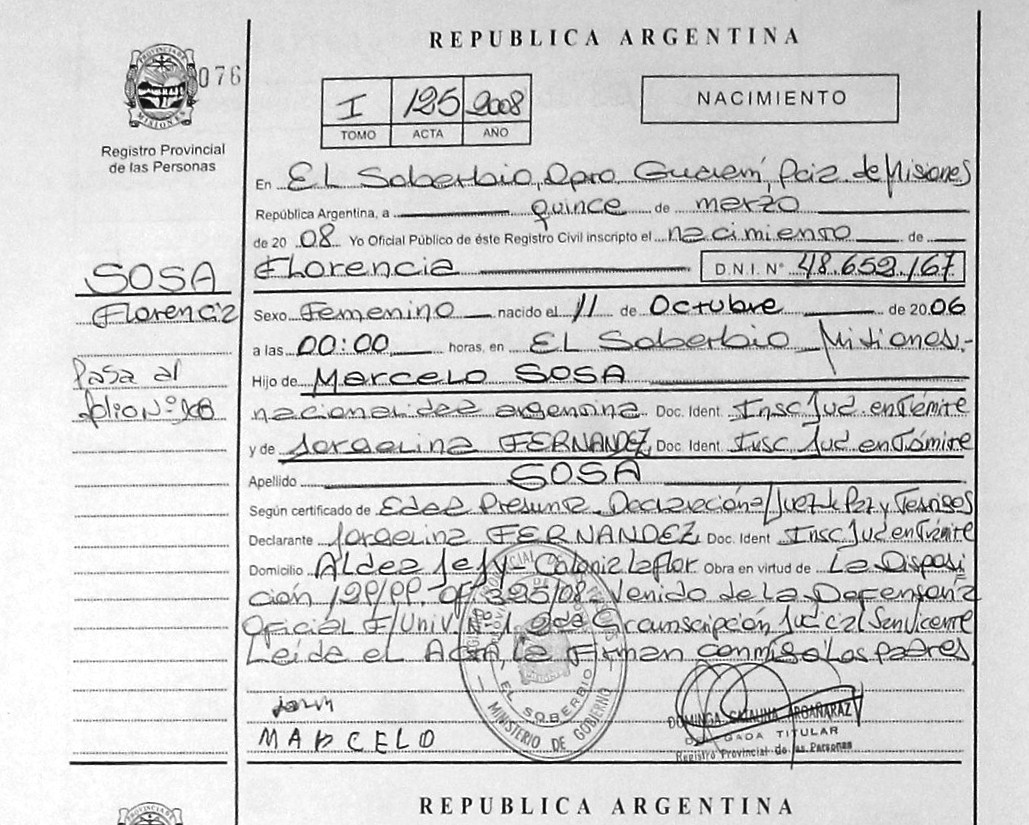 REPUBLICA ARGENTINA
PROVINCIA DE MISIONES
076
Registro Provincial
de las Personas
I 125 2008
TOMO ACTA AÑO
NACIMIENTO
En El Soberbio, Dpto. Guaraní, Pcia. de Misiones
República Argentina, a quince de marzo
de 2008 Yo Oficial Público de éste Registro Civil inscripto el nacimiento de
Florencia D.N.I. N° 48.659.167
SOSA
Florencia
Sexo Femenino nacido el 11 de Octubre de 2006
a las 00:00 horas, en El Soberbio Misiones.-
Hijo de Marcelo SOSA
Pasa al
folio N°
nacionalidad argentina Doc. Ident. Insc Jud. en Trámite
y de Jorgelina FERNANDEZ, Doc. Ident. Insc. Jud en Trámite
Apellido SOSA
Según certificado de Edad Presunta, Declaración/Juez de Paz y Testigos
Declarante Jorgelina FERNANDEZ, Doc. Ident Insc Jud en Trámite
Domicilio Aldea Jejy- Colonia La flor Obra en virtud de La Disposi
ción 129/PP. Of 325/08- Venido de La Defensoría
Oficial de Circunscripción Judicial San Vicente
Leída el Acta, La Firman conmigo Los padres
MARCELO
DOMINGA CATALINA ARGAÑARAZ
TITULAR
Registro Provincial de las Personas
EL SOBERBIO
MINISTERIO DE GOBIERNO
REPUBLICA ARGENTINA